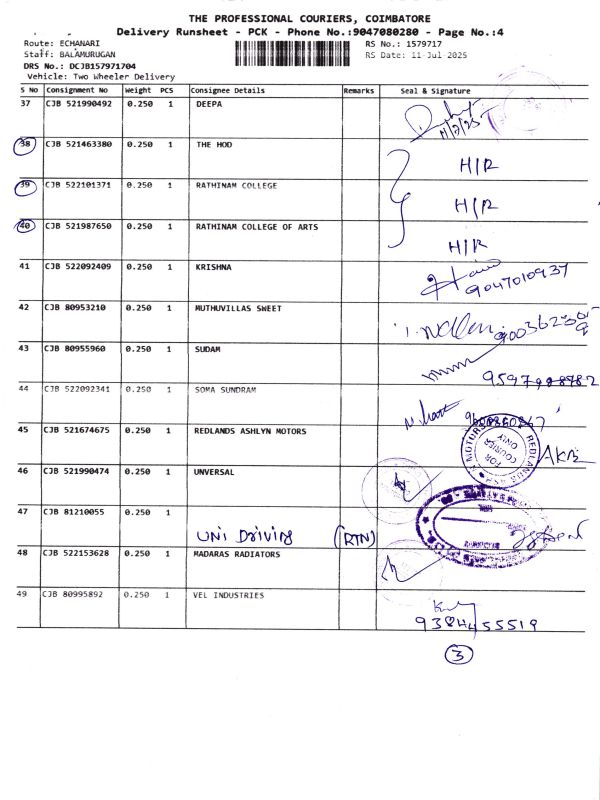 THE PROFESSIONAL COURIERS, COIMBATORE
Delivery Runsheet - PCK - Phone No.:9047080280 - Page No.:4
Route: ECHANARI RS No.: 1579717
Staff: BALAMURUGAN RS Date: 11-Jul-2025
DRS No.: DCJB157971704
Vehicle: Two Wheeler Delivery
S No Consignment No Weight PCS Consignee Details Remarks Seal & Signature
37 CJB 521990492 0.250 1 DEEPA
11/7/25
38 CJB 521463380 0.250 1 THE HOD
H/R
39 CJB 522101371 0.250 1 RATHINAM COLLEGE
H/R
40 CJB 521987650 0.250 1 RATHINAM COLLEGE OF ARTS
H/R
41 CJB 522092409 0.250 1 KRISHNA
9047010937
42 CJB 80953210 0.250 1 MUTHUVILLAS SWEET
43 CJB 80955960 0.250 1 SUDAM
44 CJB 522092341 0.250 1 SOMA SUNDRAM
45 CJB 521674675 0.250 1 REDLANDS ASHLYN MOTORS
REDLANDS MOTORS
FOR COURIER ONLY
46 CJB 521990474 0.250 1 UNVERSAL
47 CJB 81210055 0.250 1
UNI Driving (RTN)
48 CJB 522153628 0.250 1 MADARAS RADIATORS
49 CJB 80995892 0.250 1 VEL INDUSTRIES
9384455519
3